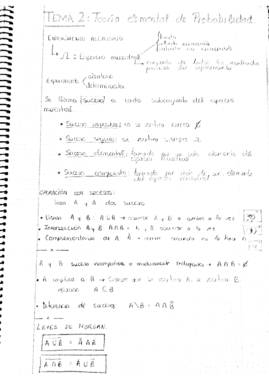 TEMA 2: Teoría elemental de Probabilidad.
EXPERIMENTO ALEATORIO
finito
infinito numerable
infinito no numerable
Ω: Espacio muestral
conjunto de todos los resultados
posibles del experimento
Experimento
aleatorio
determinista
Se llama (suceso) a cada subconjunto del espacio
muestral.
• Suceso imposible: no se realiza nunca ∅
• Suceso seguro: se realiza siempre Ω
• Suceso elemental: formado por un solo elemento del
espacio muestral
• Suceso compuesto: formado por más de un elemento
del espacio muestral
OPERACIÓN CON SUCESOS:
Sean A y B dos sucesos
• Unión A y B: A∪B → ocurre A, B o ambos a la vez
• Intersección A y B A∩B → A, B ocurre a la vez
• Complementario de A Ā → ocurre cuando no lo hace A
A y B suceso incompatible o mutuamente excluyentes → A∩B = ∅
• A implica a B → Siempre que se realiza A, se realiza B.
A ⊂ B
• Diferencia de sucesos A\B = A∩B̄
LEYES DE MORGAN.